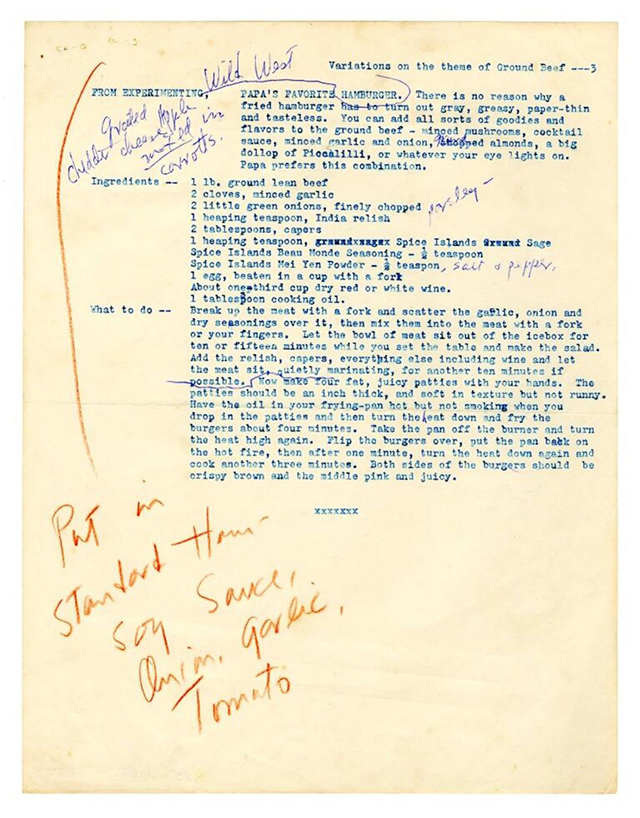 Wild West
Variations on the theme of Ground Beef ---3
FROM EXPERIMENTING, PAPA'S FAVORITE HAMBURGER. There is no reason why a
fried hamburger has to turn out gray, greasy, paper-thin
and tasteless. You can add all sorts of goodies and
flavors to the ground beef - minced mushrooms, cocktail
sauce, minced garlic and onion, chopped almonds, a big
dollop of Piccalilli, or whatever your eye lights on.
Papa prefers this combination.
grated apple
chedder cheese
mixed in
carrotts.
Ingredients -- 1 lb. ground lean beef
2 cloves, minced garlic
2 little green onions, finely chopped parsley -
1 heaping teaspoon, India relish
2 tablespoons, capers
1 heaping teaspoon, Spice Islands Sage
Spice Islands Beau Monde Seasoning - ½ teaspoon
Spice Islands Mei Yen Powder - ½ teaspon, salt & pepper.
1 egg, beaten in a cup with a fork
About one third cup dry red or white wine.
1 tablespoon cooking oil.
What to do -- Break up the meat with a fork and scatter the garlic, onion and
dry seasonings over it, then mix them into the meat with a fork
or your fingers. Let the bowl of meat sit out of the icebox for
ten or fifteen minutes while you set the table and make the salad.
Add the relish, capers, everything else including wine and let
the meat sit, quietly marinating, for another ten minutes if
possible. Now make four fat, juicy patties with your hands. The
patties should be an inch thick, and soft in texture but not runny.
Have the oil in your frying-pan hot but not smoking when you
drop in the patties and then turn the heat down and fry the
burgers about four minutes. Take the pan off the burner and turn
the heat high again. Flip the burgers over, put the pan back on
the hot fire, then after one minute, turn the heat down again and
cook another three minutes. Both sides of the burgers should be
crispy brown and the middle pink and juicy.
xxxxxxx
Put in
Standard Ham-
Soy Sauce,
Onion, Garlic,
Tomato